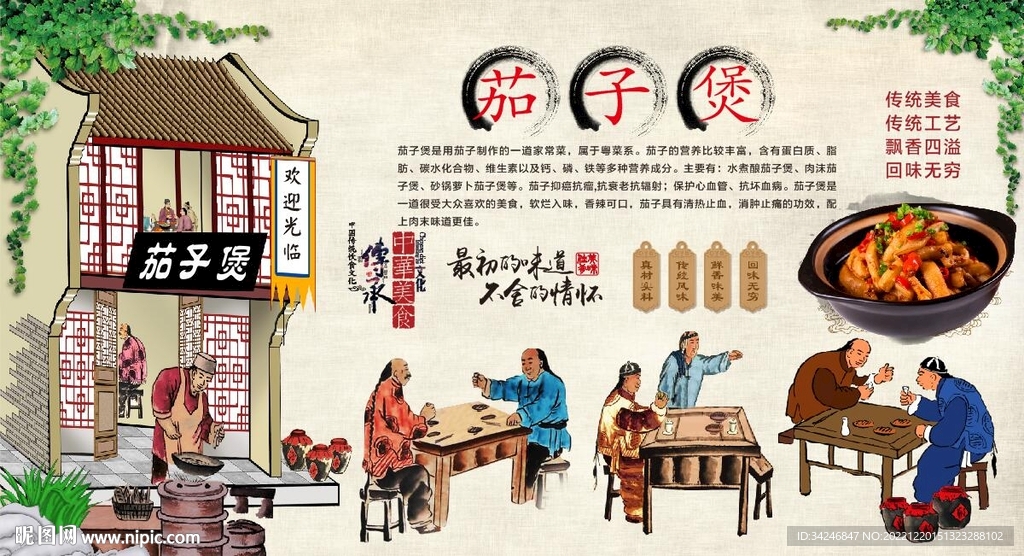 茄子煲
传统美食
传统工艺
飘香四溢
回味无穷
茄子煲是用茄子制作的一道家常菜，属于粤菜系。茄子的营养比较丰富，含有蛋白质、脂
肪、碳水化合物、维生素以及钙、磷、铁等多种营养成分。主要有：水煮酿茄子煲、肉沫茄
子煲、砂锅萝卜茄子煲等。茄子抑癌抗瘤,抗衰老抗辐射；保护心血管、抗坏血病。茄子煲是
一道很受大众喜欢的美食，软烂入味，香辣可口，茄子具有清热止血，消肿止痛的功效，配
上肉末味道更佳。
欢迎光临
茄子煲
中国传统饮食文化
传承
中華美食
文化
最初的味道
不舍的情怀
真材实料
传统风味
鲜香味美
回味无穷
昵图网 www.nipic.com
ID:34246847 NO:20221220151323288102